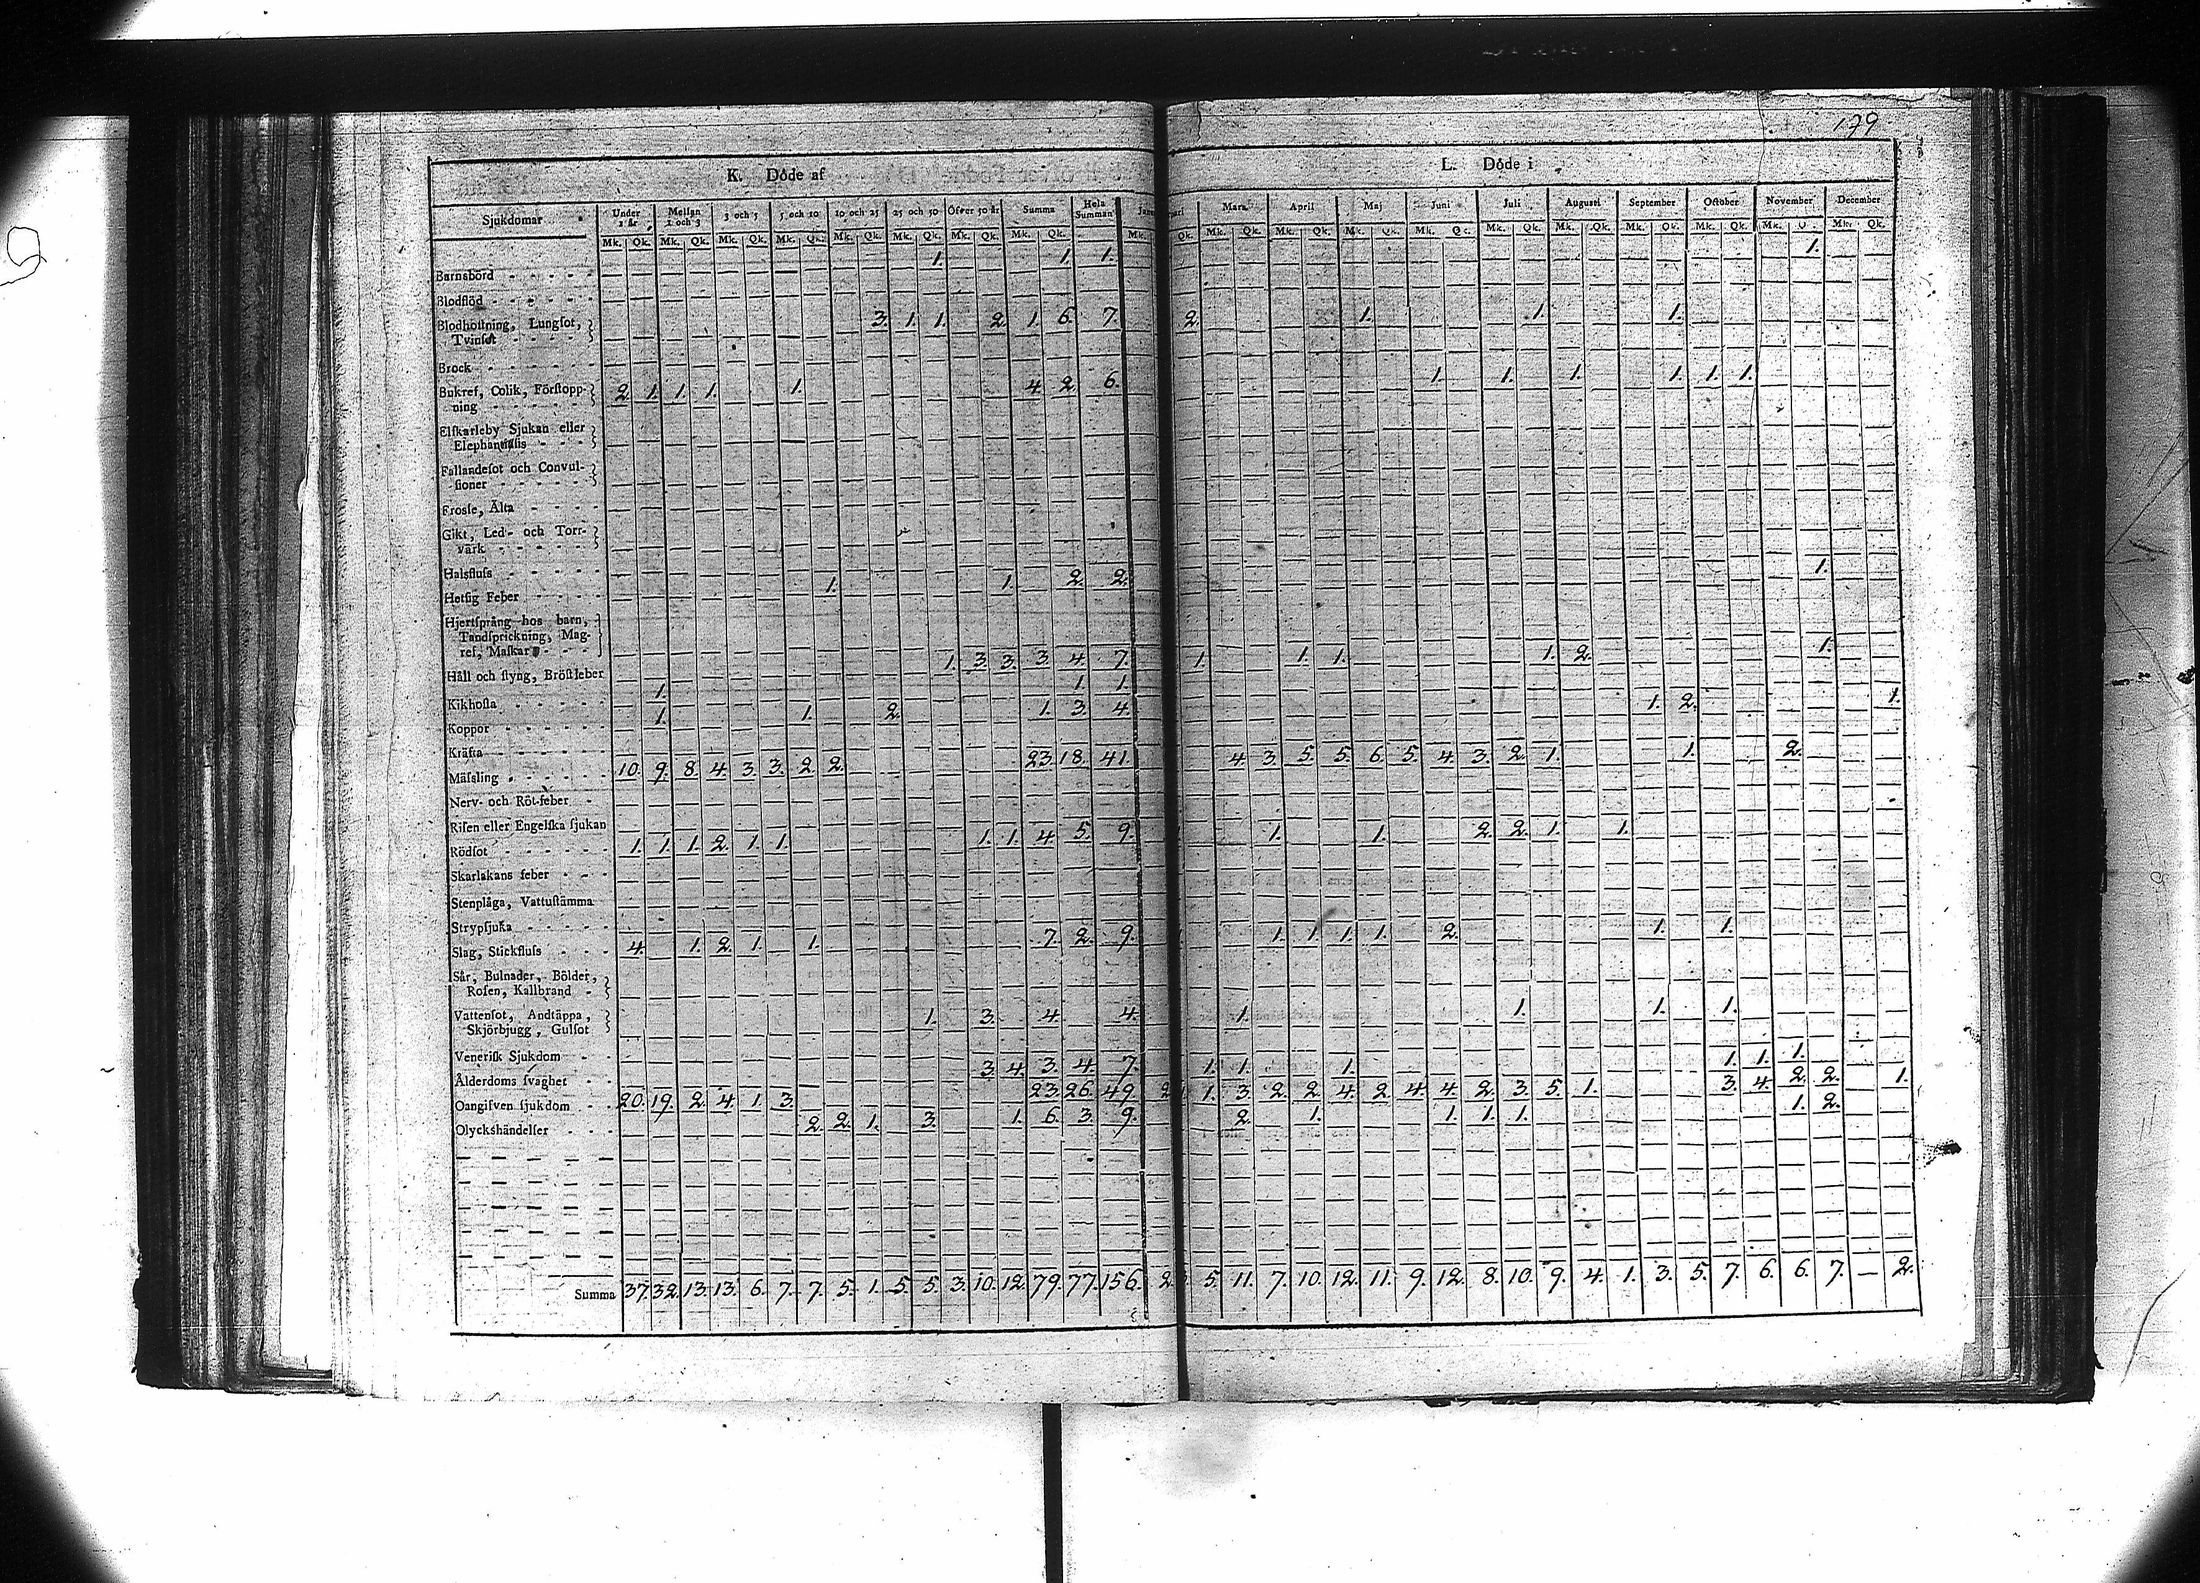 179
K. Döde af L. Döde i
Sjukdomar Under 1 år Mellan 1 och 3 3 och 5 5 och 10 10 och 25 25 och 50 Öfver 50 år Summa Hela Summan Januari Mars April Maj Juni Juli Augusti September October November December
Mk. Qk. Mk. Qk. Mk. Qk. Mk. Qk. Mk. Qk. Mk. Qk. Mk. Qk. Mk. Qk. Mk. Qk. Mk. Qk. Mk. Qk. Mk. Qk. Mk. Qk. Mk. Qk. Mk. Qk. Mk. Qk. Mk. Mk. Qk.
Barnsbörd 1. 1. 1. 1.
Blodflöd
Blodhostning, Lungsot,
Tvinsot 3. 1. 1. 2. 1. 6. 7. 2. 1. 1. 1.
Brock
Bukref, Colik, Förstopp-
ning 2. 1. 1. 1. 1. 4. 2. 6. 1. 1. 1. 1. 1. 1.
Elskarleby Sjukan eller
Elephantiasis
Fallandesot och Convul-
sioner
Frossa, Älta
Gikt, Led- och Torr-
värk
Halsfluss
Hetsig Feber 1. 1. 2. 2. 1.
Hjertsprång hos barn,
Tandsprickning, Mag-
ref, Maskar
Håll och styng, Bröstfeber 1. 3. 3. 3. 4. 7. 1. 1. 1. 1. 2. 1.
Kikhosta 1. 1. 1.
Koppor 1. 1. 2. 1. 3. 4. 1. 2. 1.
Kräfta
Mässling 10. 9. 8. 4. 3. 3. 2. 2. 23. 18. 41. 4. 3. 5. 5. 6. 5. 4. 3. 2. 1. 1. 2.
Nerv- och Röt-feber
Risen eller Engelska sjukan
Rödsot 1. 1. 1. 2. 1. 1. 1. 1. 4. 5. 9. 1. 1. 2. 2. 1. 1.
Skarlakans feber
Stenplåga, Vattustämma
Strypsjuka
Slag, Stickfluss 4. 1. 2. 1. 1. 7. 2. 9. 1. 1. 1. 1. 2. 1. 1.
Sår, Bulnader, Bölder,
Rosen, Kallbrand
Vattensot, Andtäppa,
Skjörbjugg, Gulsot 1. 3. 4. 4. 1. 1. 1. 1.
Venerisk Sjukdom
Ålderdoms svaghet 3. 4. 3. 4. 7. 1. 1. 1. 1. 1. 1.
Oangifven sjukdom 20. 19. 2. 4. 1. 3. 23. 26. 49. 2 1. 3. 2. 2. 4. 2. 4. 4. 2. 3. 5. 1. 3. 4. 2. 2. 1.
Olyckshändelser 2. 2. 1. 3. 1. 6. 3. 9. 2. 1. 1. 1. 1. 1. 2.
Summa 37. 32. 13. 13. 6. 7. 7. 5. 1. 5. 5. 3. 10. 12. 79. 77. 156. 2 5. 11. 7. 10. 12. 11. 9. 12. 8. 10. 9. 4. 1. 3. 5. 7. 6. 6. 7. — 2.